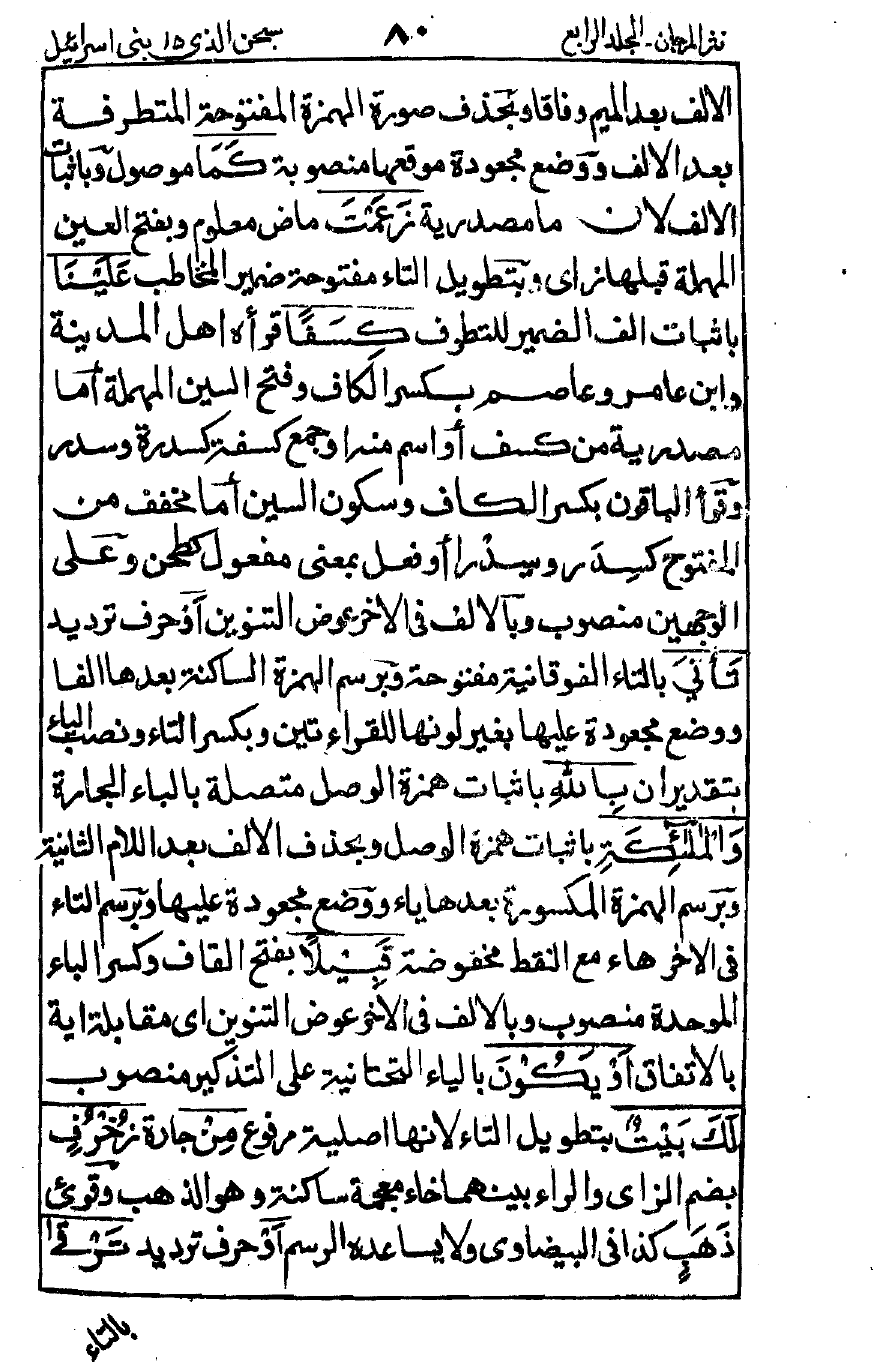 نثر المرجان - المجلد الرابع ٨٠ سبحن الذی ١٥ بنی اسرائیل
الالف بعد المیم وفاقا وبحذف صورة الهمزة المفتوحة المتطرفة
بعد الالف ووضع مجعودة موقعها منصوبة كَمَا موصول وباثبات
الالف لان ما مصدریة زَعَمْتَ ماض معلوم وبفتح العین
المهملة قبلها زای وبتطویل التاء مفتوحة ضمیر المخاطب عَلَیْنَا
باثبات الف الضمیر للتطرف كِسَفًا قرأه اهل المدینة
وابن عامر وعاصم بكسر الكاف وفتح السین المهملة أما
مصدریة من كسف أو اسم منه او جمع كسفة كسدرة وسدر
وقرأ الباقون بكسر الكاف وسكون السین أما مخفف من
المفتوح كسِدَر وسِدْر أو فعل بمعنی مفعول كطحن وعلی
الوجهین منصوب وبالالف فی الاخر عوض التنوین أَوْ حرف تردید
تَأْتِیَ بالتاء الفوقانیة مفتوحة وبرسم الهمزة الساكنة بعدها الفا
ووضع مجعودة علیها بغیر لونها للقراءتین وبكسر التاء ونصب الیاء
بتقدیر ان بِاللّٰهِ باثبات همزة الوصل متصلة بالباء الجارة
وَالْمَلٰٓئِكَةِ باثبات همزة الوصل وبحذف الالف بعد اللام الثانیة
وبرسم الهمزة المكسورة بعدها یاء ووضع مجعودة علیها وبرسم التاء
فی الاخر هاء مع النقط مخفوضة قَبِیْلًا بفتح القاف وكسر الباء
الموحدة منصوب وبالالف فی الاخر عوض التنوین ای مقابلة ایة
بالاتفاق أَوْ یَكُوْنَ بالیاء التحتانیة علی التذكیر منصوب
لَكَ بَیْتٌ بتطویل التاء لانها اصلیة مرفوع مِنْ جارة زُخْرُفٍ
بضم الزای والراء بینهما خاء معجمة ساكنة وهو الذهب وقرئ
ذَهَبٍ كذا فی البیضاوی ولا یساعده الرسم أَوْ حرف تردید تَرْقٰی
بالتاء